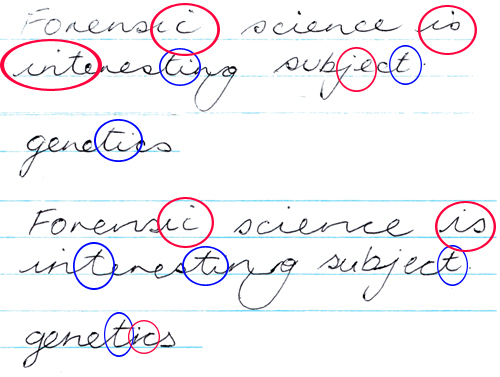 Forensic science is
interesting subject.
genetics
Forensic science is
interesting subject.
genetics